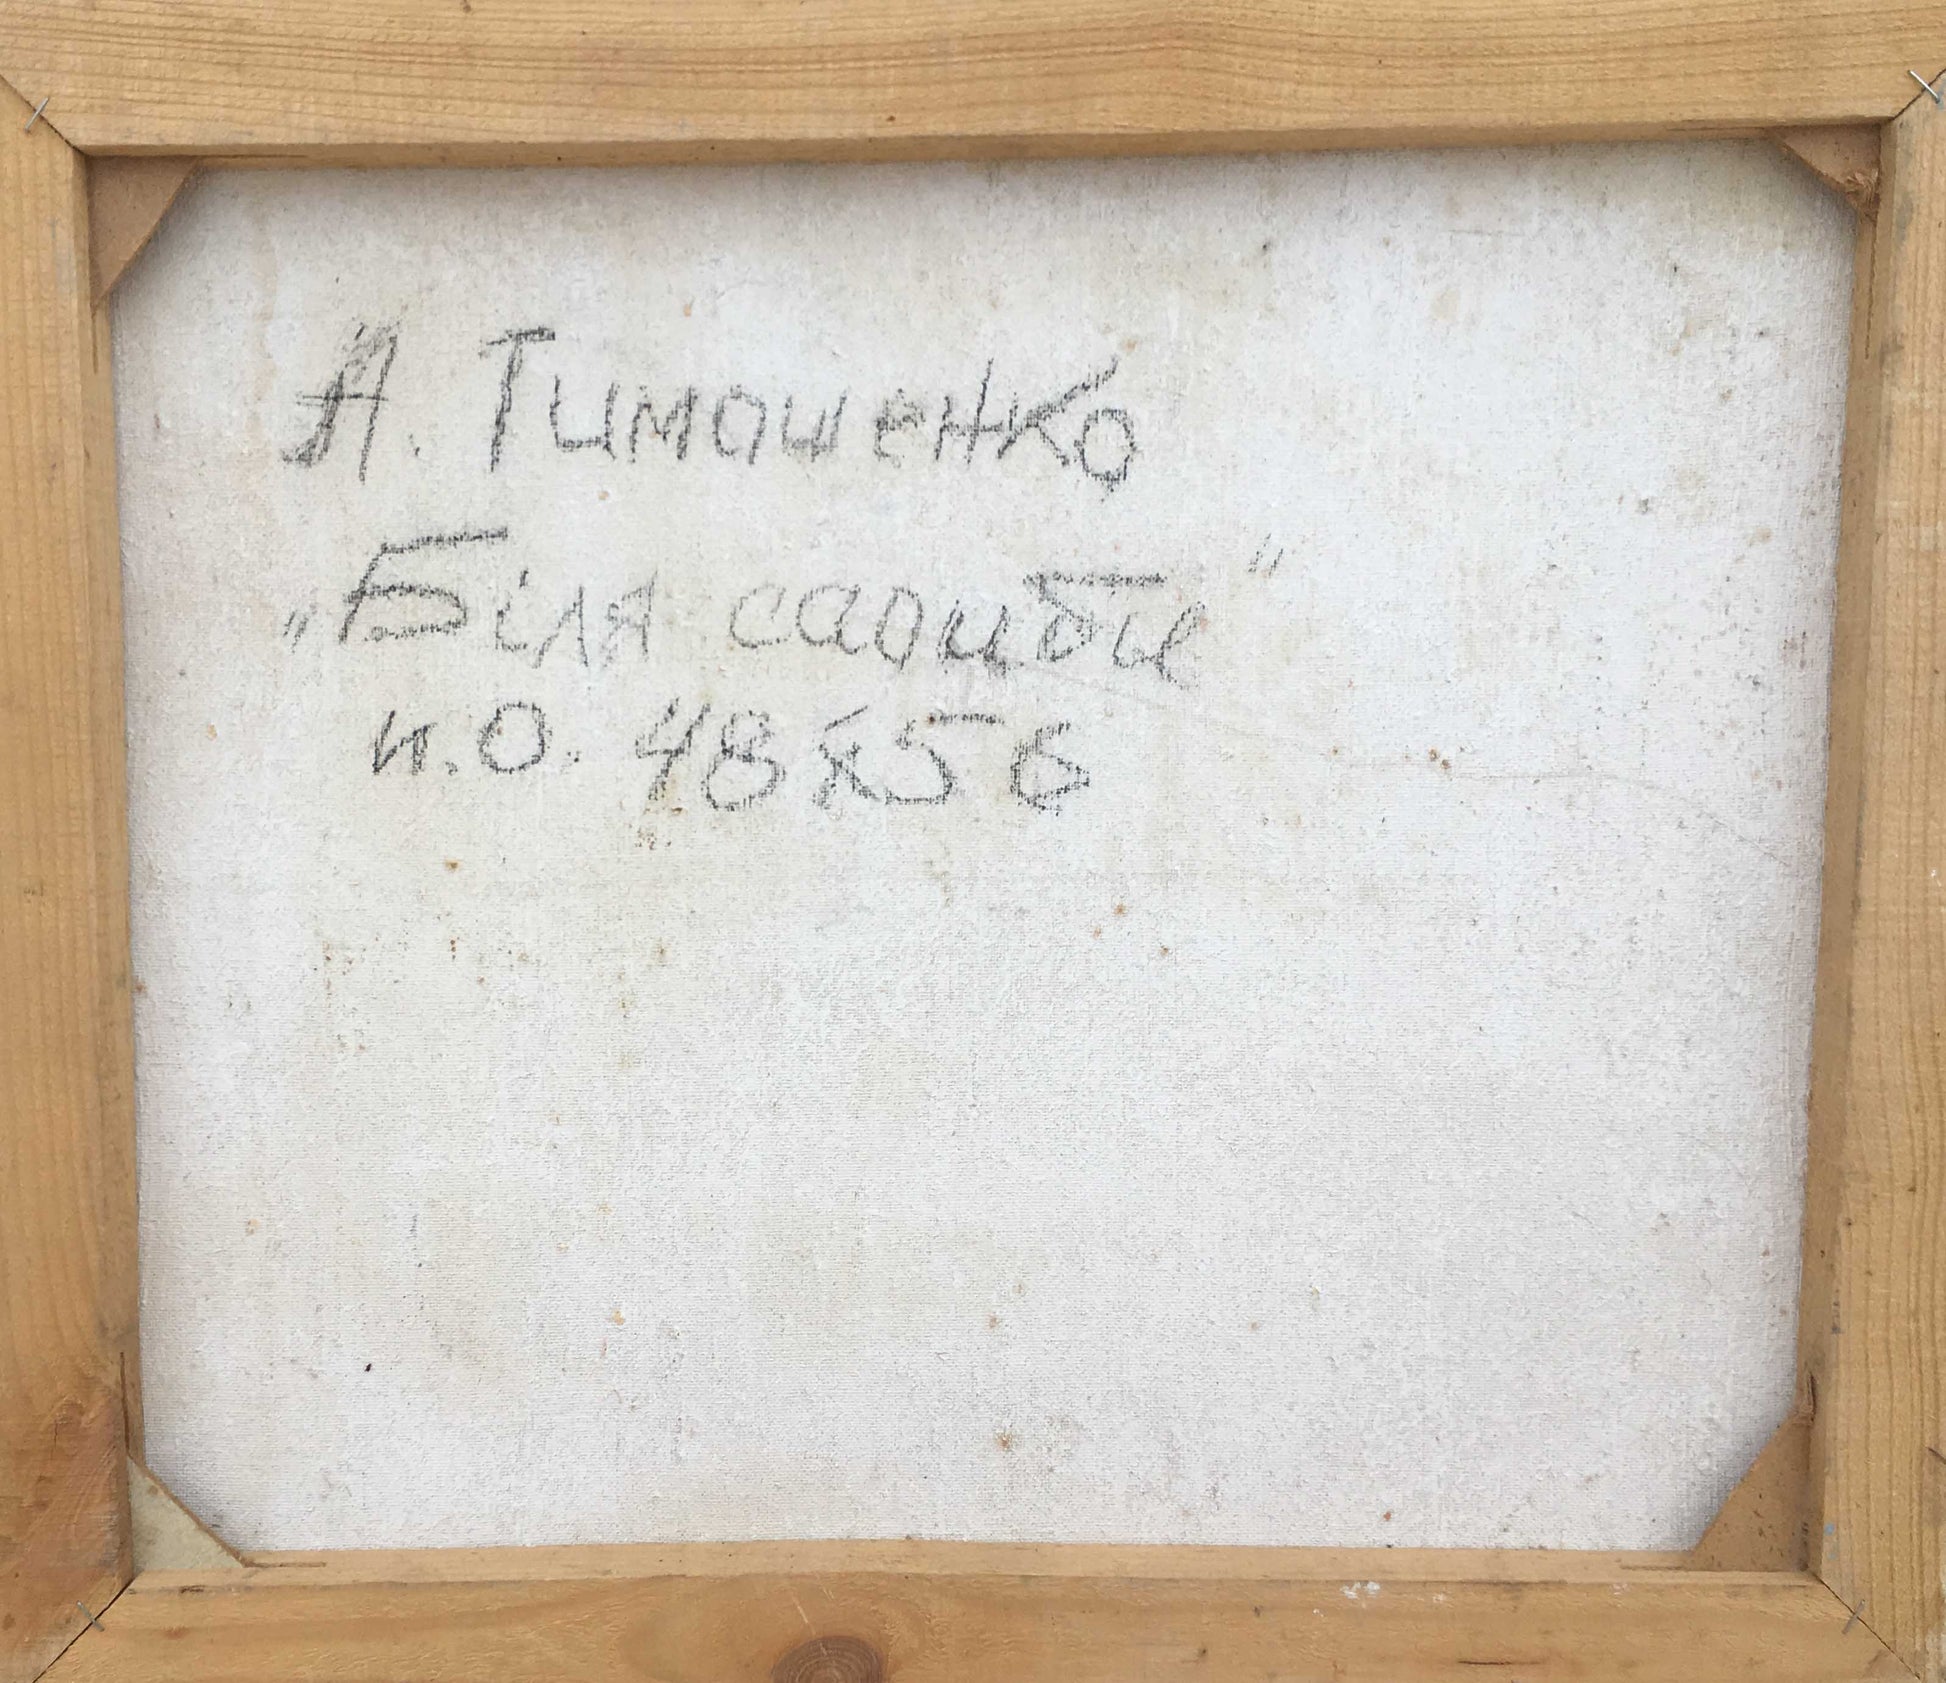 А. Тимошенко
"Біля садиби"
к.о. 48х56